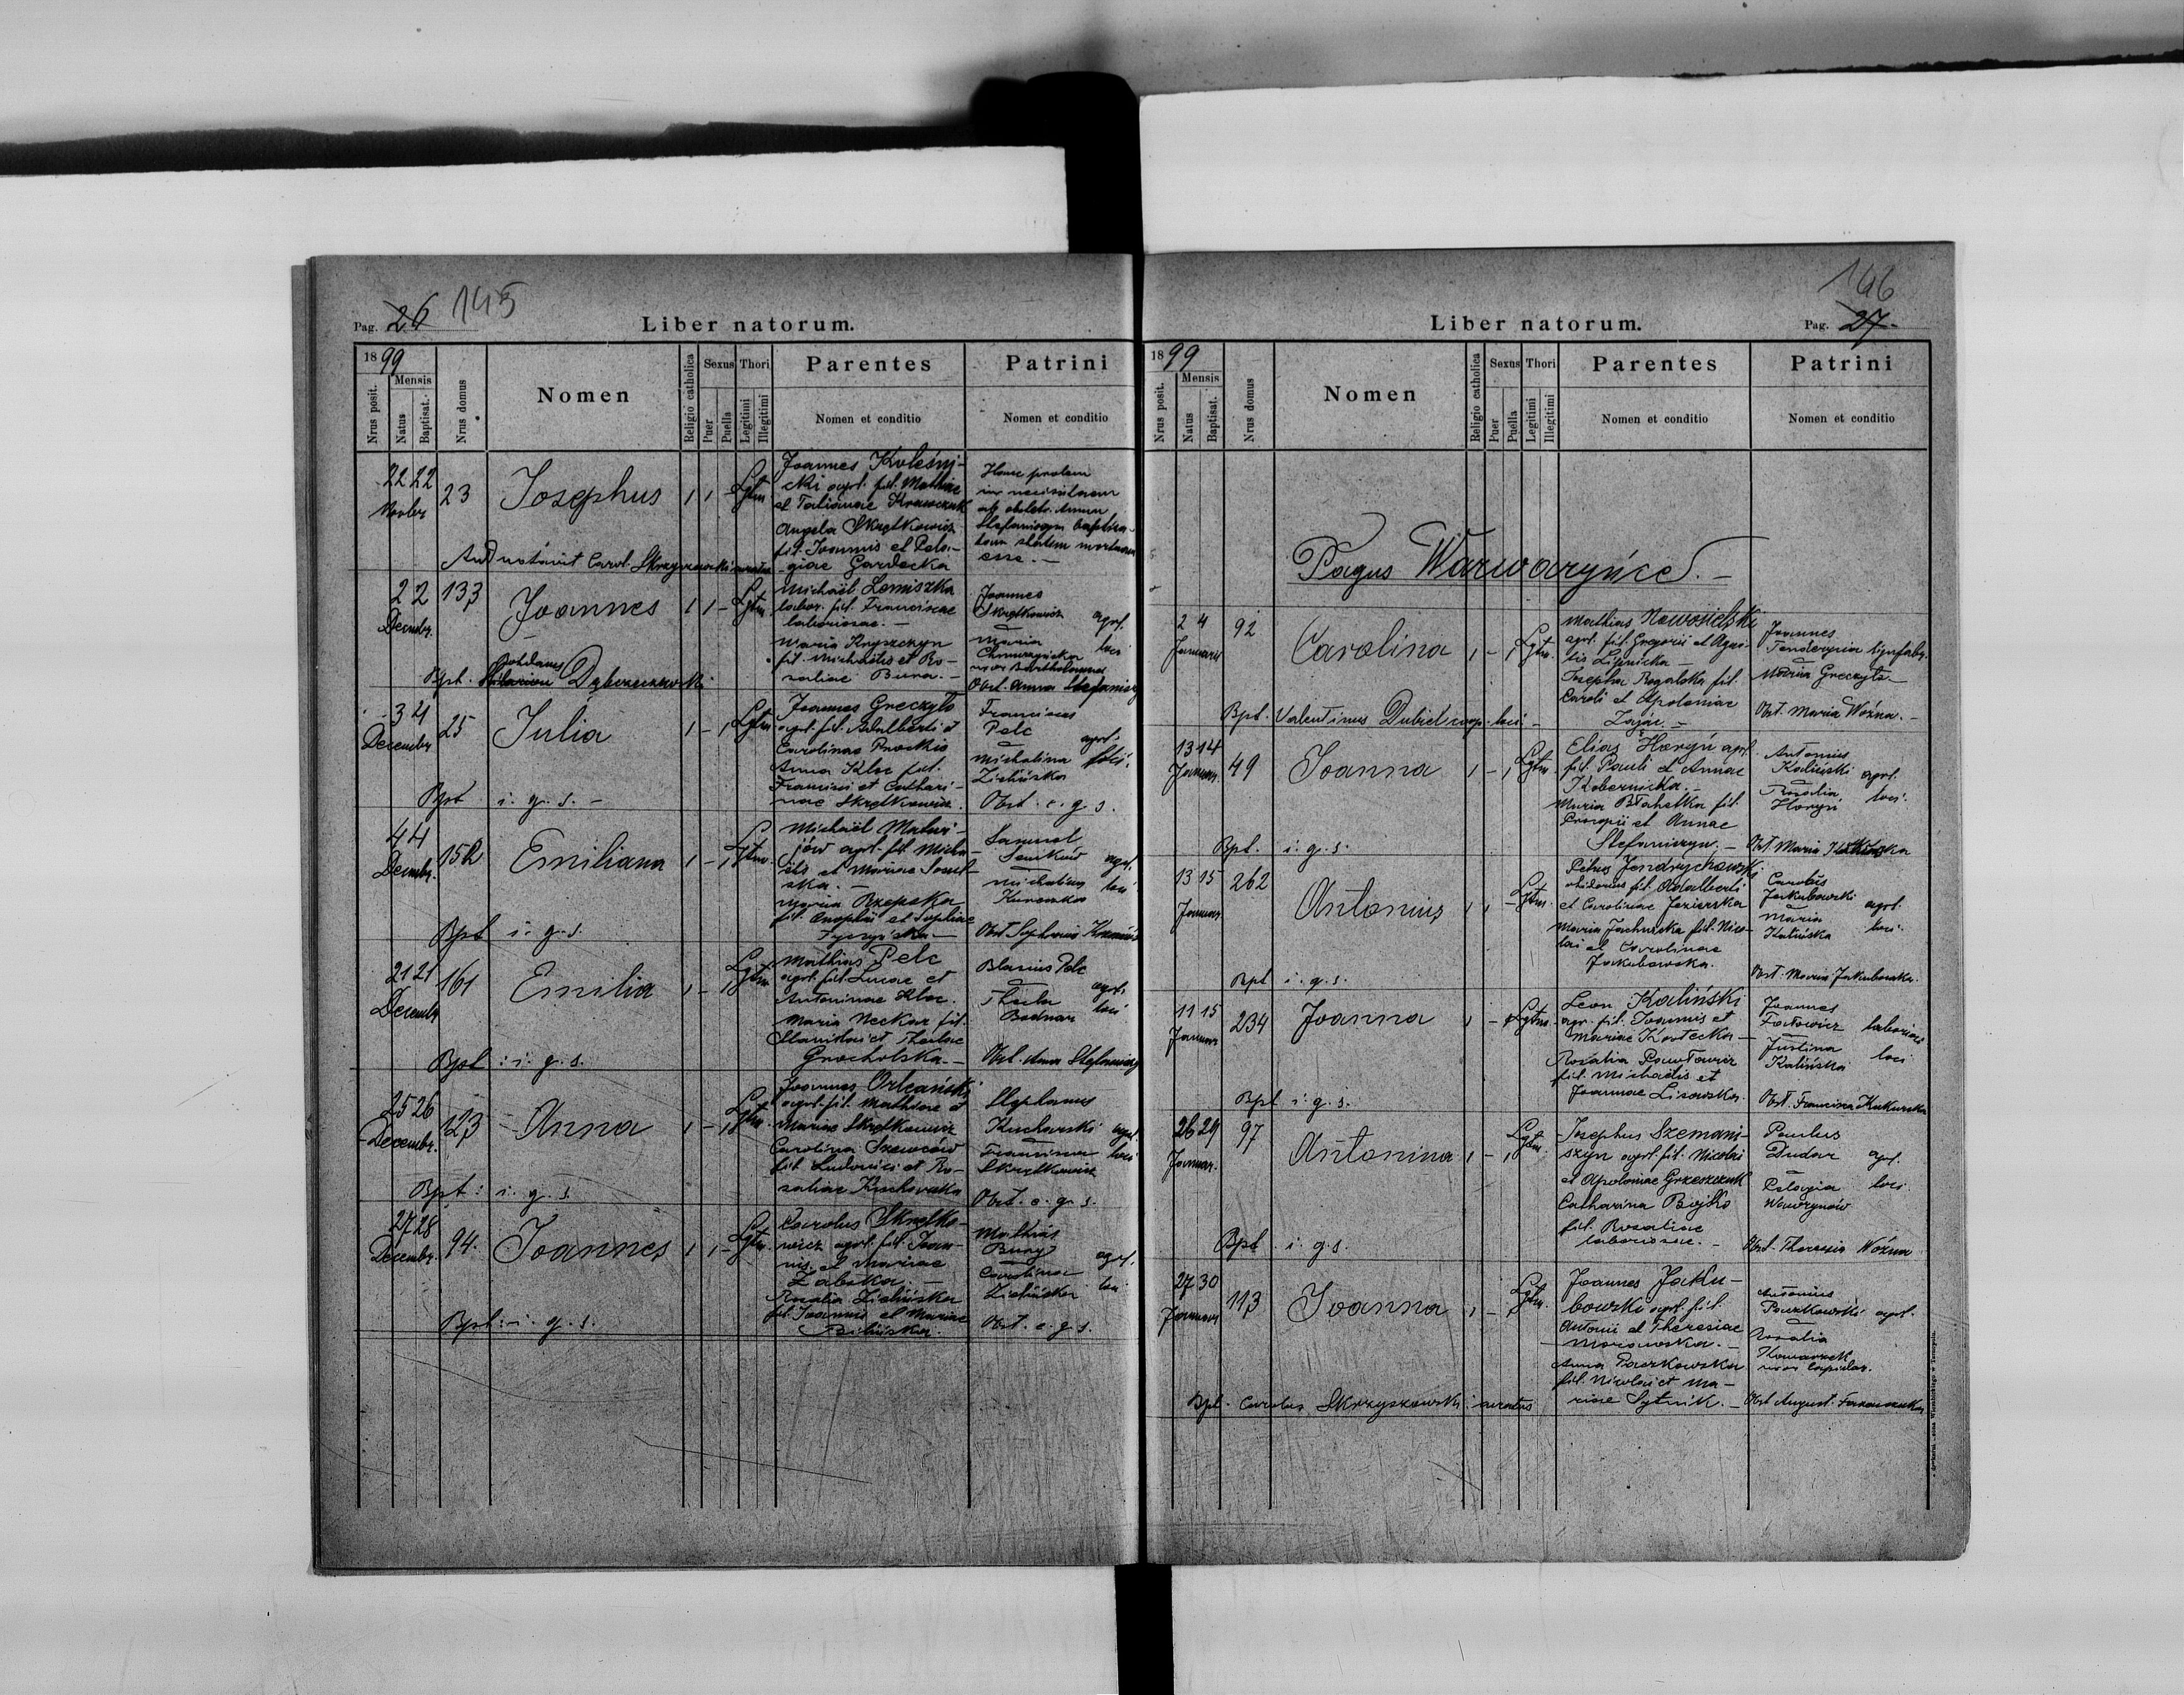 Pag. 26 145
Liber natorum.
1899
Nrus posit.
Mensis
Natus
Baptisat.
Nrus domus
Nomen
Religio catholica
Sexus
Puer
Puella
Thori
Legitimi
Illegitimi
Parentes
Nomen et conditio
Patrini
Nomen et conditio
22 22
Novbr
23
Josephus
1 1 - Lgtm.
Joannes Koleśni-
cki agrl. fil. Mathiae
et Tatianae Krawczuk
Angela Skrętkowicz
fil. Joannis et Pela-
giae Gardecka
Hanc prolem
in necessitatem
ab obstetr. Anna
Stefaniszyn baptisa-
tam statim mortuam
esse. -
Adnotavit Carol. Skrzyszowski curatus
2 2
Decembr.
133
Joannes
1 1 - Lgtm.
Michaël Lomiszka
labor. fil. Franciscae
laboriosae. -
Maria Kryszczyn
fil. Michaëlis et Ro-
saliae Bura. -
Joannes
Skrętkowicz agrl.
Maria loci
uxor Bartholomaei
Obst. Anna Stefanicz
Bpt. Dąbczewski
3 4
Decembr
25
Julia
1 - 1 Lgtm
Joannes Greczyło
agrl. fil. Adalberti et
Carolinae
Anna Kloc fil.
Francisci et Cathari-
nae Skrętkowicz.
Franciscus
Pelc agrl.
Michalina loci.
Zielińska
Obst. e. g. s.
Bpt i. q. s. -
4 4
Decembr.
152
Emiliana
1 - 1 Lgtm.
Michaël Matwi-
jów agrl. fil. Micha-
ëlis et Mariae
ska. -
Maria Rzepska
fil. Onophrii et Sophiae
Tyczyńska -
Samuel
Senków agrl.
Michalina loci
Kurowska
Obst. Stephania
Bpt i. q. s.
21 21
Decembr
161
Emilia
1 - 1 Lgtm
Mathias Pelc
agrl. fil. Lucae et
Antoninae Kloc.
Maria Neckar fil.
Stanislai et Theclae
Grocholska. -
Blasius Pelc
Thecla agrl.
Bodnar loci
Obst. Anna Stefanicz
Bpt : i. q. s.
25 26
Decembr.
123
Anna
1 - 1 Lgtm.
Joannes Orleański
agrl. fil. Mathiae et
Mariae Skrętkowicz
Carolina Szewców
fil. Ludovici et Ro-
saliae Kuchorska
Stephanus
Kuchorski agrl.
Francisca loci
Skrętkowicz
Obst. e. g. s.
Bpt: i. q. s.
27 28
Decembr.
94.
Joannes
1 1 - Lgtm.
Carolus Skrętko-
wicz agrl. fil. Joan-
nis et Mariae
Zabska. -
Rosalia Zielińska
fil. Joannis et Mariae
Bilińska.
Mathias
Bury agrl.
Carolina
Zielińska loci
Obst. e. g. s.
Bpt: i. q. s.
146
Liber natorum.
Pag. 27.
1899
Nrus posit.
Mensis
Natus
Baptisat.
Nrus domus
Nomen
Religio catholica
Sexus
Puer
Puella
Thori
Legitimi
Illegitimi
Parentes
Nomen et conditio
Patrini
Nomen et conditio
Pagus Warwaryńce. -
2 4
Januarii
92
Carolina
1 - 1 Lgtm.
Mathias Nowosielski
agrl. fil. Gregorii et Agne-
tis Lipnicka -
Josepha Rogalska fil.
Caroli et Apoloniae
Zając. -
Joannes
Maria Greczyło -
Obst. Maria Woźna. -
Bpt. Valentinus Dubiel coop. loci -
13 14
Januar.
49
Joanna
1 - 1 Lgtm.
Elias Horyń agrl.
fil. Pauli et Annae
Kobernicka. -
Maria Błahetka fil.
Procopii et Annae
Stefaniszyn. -
Antonius
Kaliński agrl.
Rosalia loci.
Horyń
Obst Maria
Bpt. i. q. s.
13 15
Januar
262
Antonius
1 1 - Lgtm.
Petrus Jendrychowski
fil. Adalberti
et Carolinae Jezierska
Maria Jachnicka fil. Nico-
lai et Carolinae
Jakubowska.
Carolus
Jakubowski agrl.
Maria
Kalińska loci.
Obst. Maria Jakubowska.
Bpt i. q. s.
11 15
Januar
234
Joanna
1 - 1 Lgtm.
Leon Kaliński
agr. fil. Joannis et
Mariae Kostecka -
Rosalia Pawłowicz
fil. Michaëlis et
Joannae Lisowska.
Joannes
Justina loci
Kalińska
Obst. Francisca Kukurska
Bpt i. q. s.
26 29
Januar.
97
Antonina
1 - 1 Lgtm.
Josephus Szemani-
szyn agrl. fil. Nicolai
et Apoloniae Grzeszczuk
Catharina Bojko
fil. Rosaliae
laboriosae. -
Paulus
Dudar agrl.
Pelagia loci
Wawrynów
Obst. Theresia Woźna
Bpt i. q. s.
27 30
Januar
113
Joanna
1 - 1 Lgtm.
Joannes Jaku-
bowski agrl. fil.
Antonii et Theresiae
Morawska. -
Anna Paczkowska
fil. Nicolai et Ma-
riae Sytnik. -
Antonius
Paczkowski agrl.
Rosalia
uxor
Obst August.
Bpt. Carolus Skrzyszowski curatus